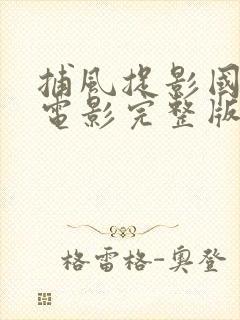 捕风捉影国
电影完整版
格雷格-奥登